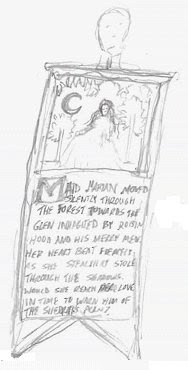 MAID MARIAN MOVED
SILENTLY THROUGH
THE FOREST TOWARDS THE
GLEN INHABITED BY ROBIN
HOOD AND HIS MERRY MEN.
HER HEART BEAT FIERCELY
AS SHE STEALTHILY STOLE
THROUGH THE SHADOWS.
WOULD SHE REACH LOVE
IN TIME TO WARN HIM OF
THE SHERIFF'S PLAN?